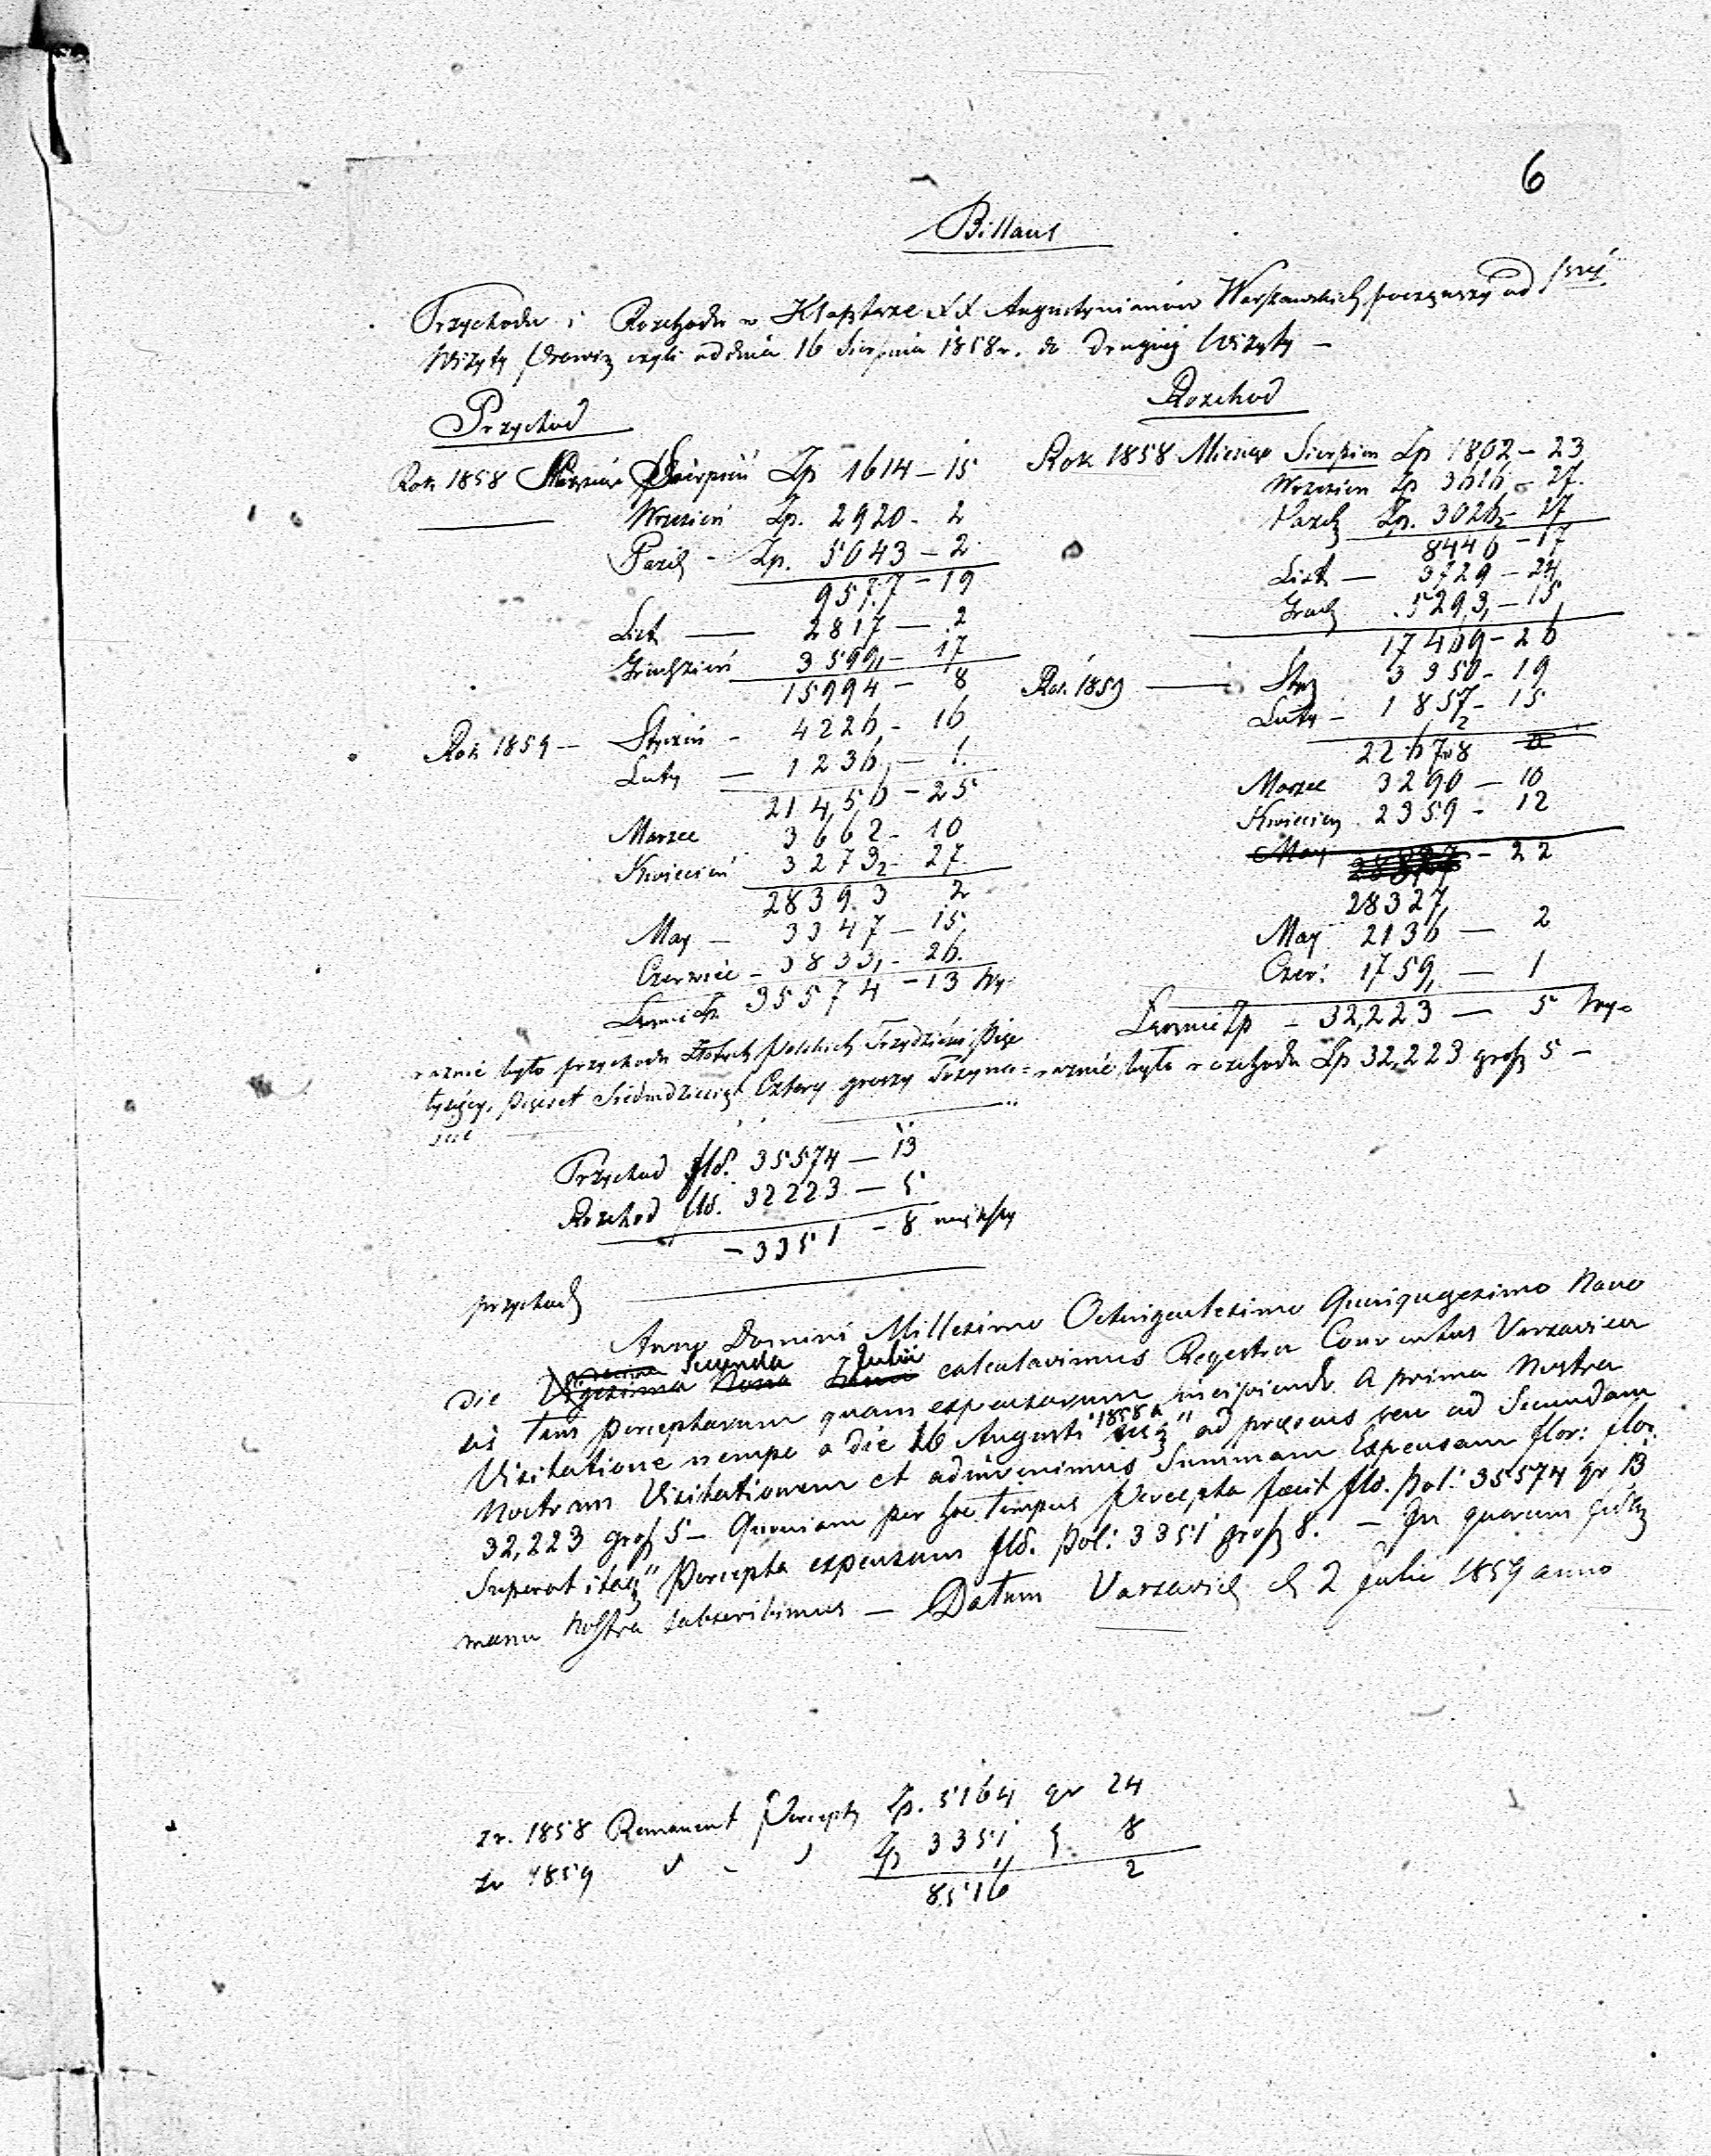 6
Billans
Przychodu i Rozchodu w Klasztorze XX Augustynianów Warszawskich, począwszy od
Wizyty czyli od dnia 16 Sierpnia 1858 r. do drugiej Wizyty –
Przychod
Rok 1858 Sierpień Zp 1614 – 15
Wrzesień Zp. 2920 - 2
Pazdz - Zp. 5043 – 2
9577 – 19
List — 2817 — 2
Grudzień 3599 – 17
15994 – 8
Rok 1859 — Styczeń - 4226 - 16
Luty — 1236 — 1
21456 – 25
Marzec 3662 - 10
Kwiecień 3273 - 27
28393 2
May — 3347 – 15
Czerwiec - 3833 - 26.
Łącznie Zp 35574 – 13 Wy-
raznie było przychodu Złotych Polskich Trzydzieści Pięc
tysięcy, Pięcset Siedmdziesiąt Cztery groszy Trzyna=
scie
Rozchod
Rok 1858 Miesiąc Sierpien Zp 1802 – 23
Wrzesien Zp 3616 – 27.
Pazdz Zp. 3026 - 27
8446 – 17
List — 3729 – 24
Grudz 5293 – 15
17469 – 26
Rok 1859 — Stycz 3350 - 19
Luty – 1857 - 15
22678
Marzec 3290 — 10
Kwiecien 2359 - 12
May – 22
28327
May 2136 — 2
Czer: 1759 — 1
Łącznie Zp – 32,223 — 5 Wy=
raznie było rozchodu Zp 32,223 grosz 5 –
Przychod fld. 35574 — 13
Rozchod fld. 32223 — 5
– 3351 – 8 większy
przychod
Anno Domini Millesimo Octingentesimo Quinquagesimo Nono
die Vigesima Nona Secunda Julii calculavimus Regestra Conventus Varsavien
sis tam Perceptarum quam expensarum incipiendo a prima Nostra
Visitatione nempe a die 16 Augusti 1858 a ad præsens seu ad Secundam
Nostram Visitationem et adinvenimus Summam Expensam flor: flor.
32,223 grosz 5 – Quoniam per hoc tempus Percepta facit fld. Pol: 35574 gr 13
Superat itaq" Percepta expensam fld. Pol: 3351 grosz 8. – In quorum fidem
manu Nostra subscribimus — Datum Varsavie d 2 Julii 1859 anno
z r. 1858 Remanent Percepty Zp. 5164 gr 24
z r 1859 " - " Zp 3351 g. 8
8516 2